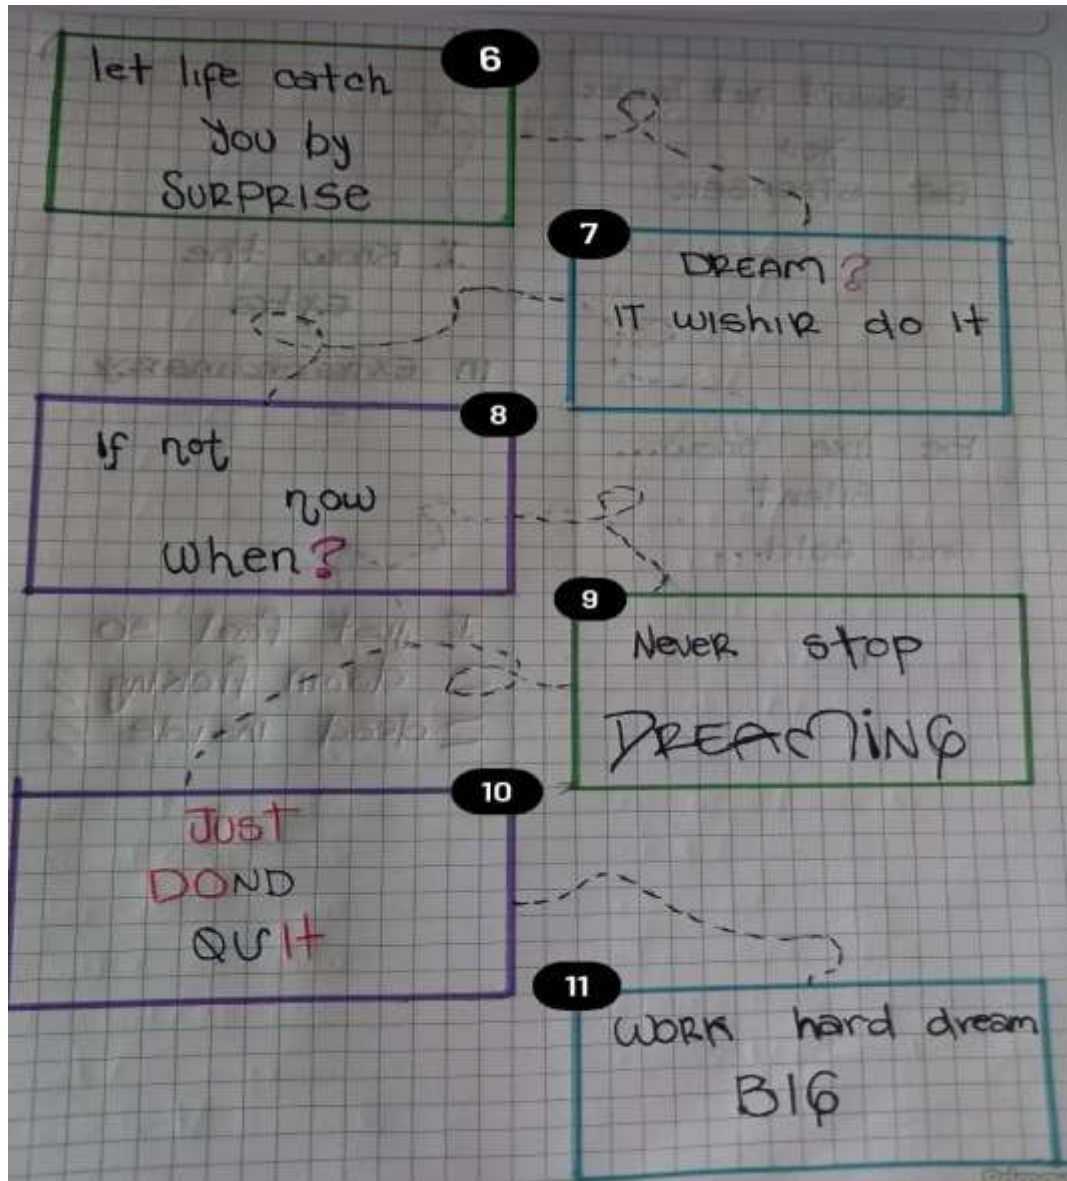 6
let life catch
you by
SURPRISE
7
DREAM?
IT WISHIR do It
8
If not
now
when?
9
Never stop
DREAMING
10
JUST
DOND
QUIt
11
WORK hard dream
BIG